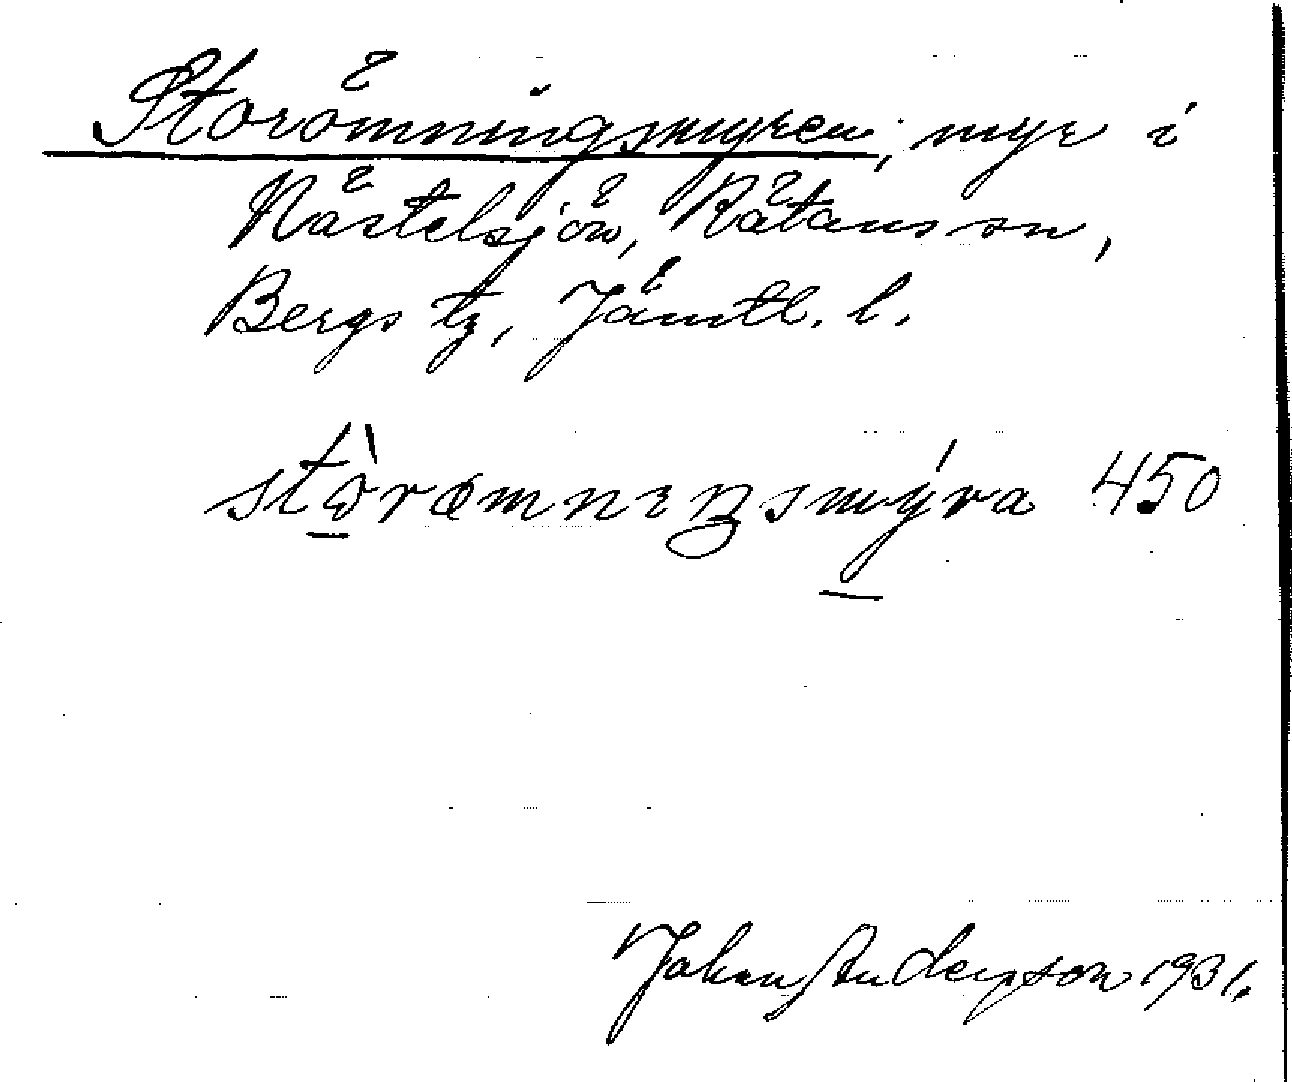 Storömningsmyren, myr i
Nästelsjön, Rätans sn,
Bergs tg, Jämtl. l.
stòrømnıŋsmýra 450
Johan Anderson 1931.